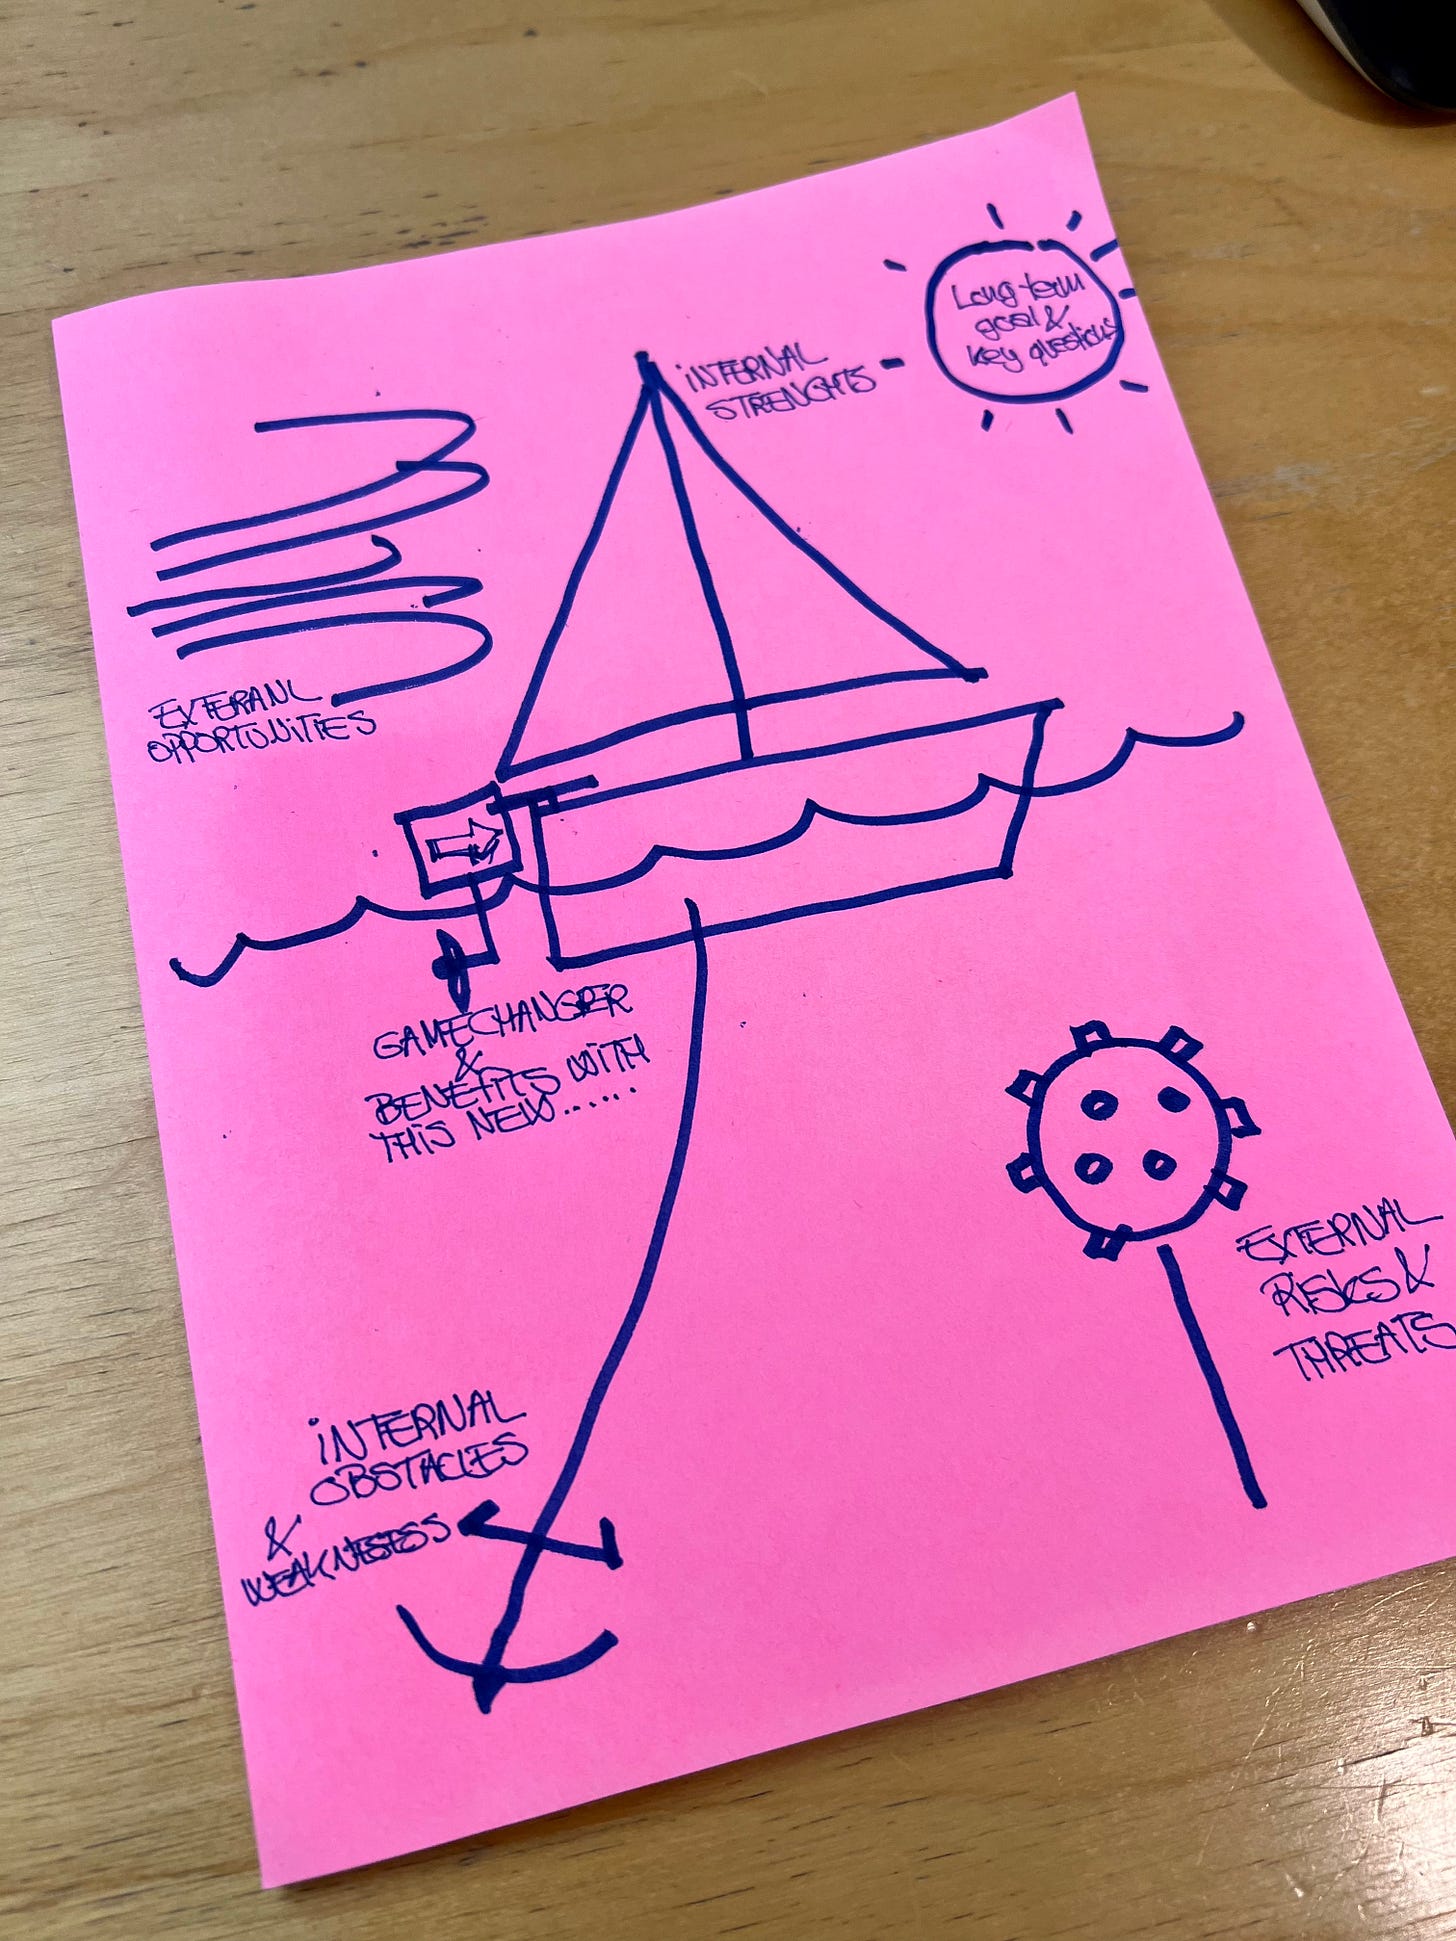 Long-term
goal &
key questions
iNTERNAL
STRENGHTS
EXTERANL
OPPORTUNiTiES
GAMECHANGER
&
BENEFITS WiTH
THiS NEW......
EXTERNAL
RiSKS &
THREATS
iNTERNAL
OBSTACLES
&
WEAKNESESS